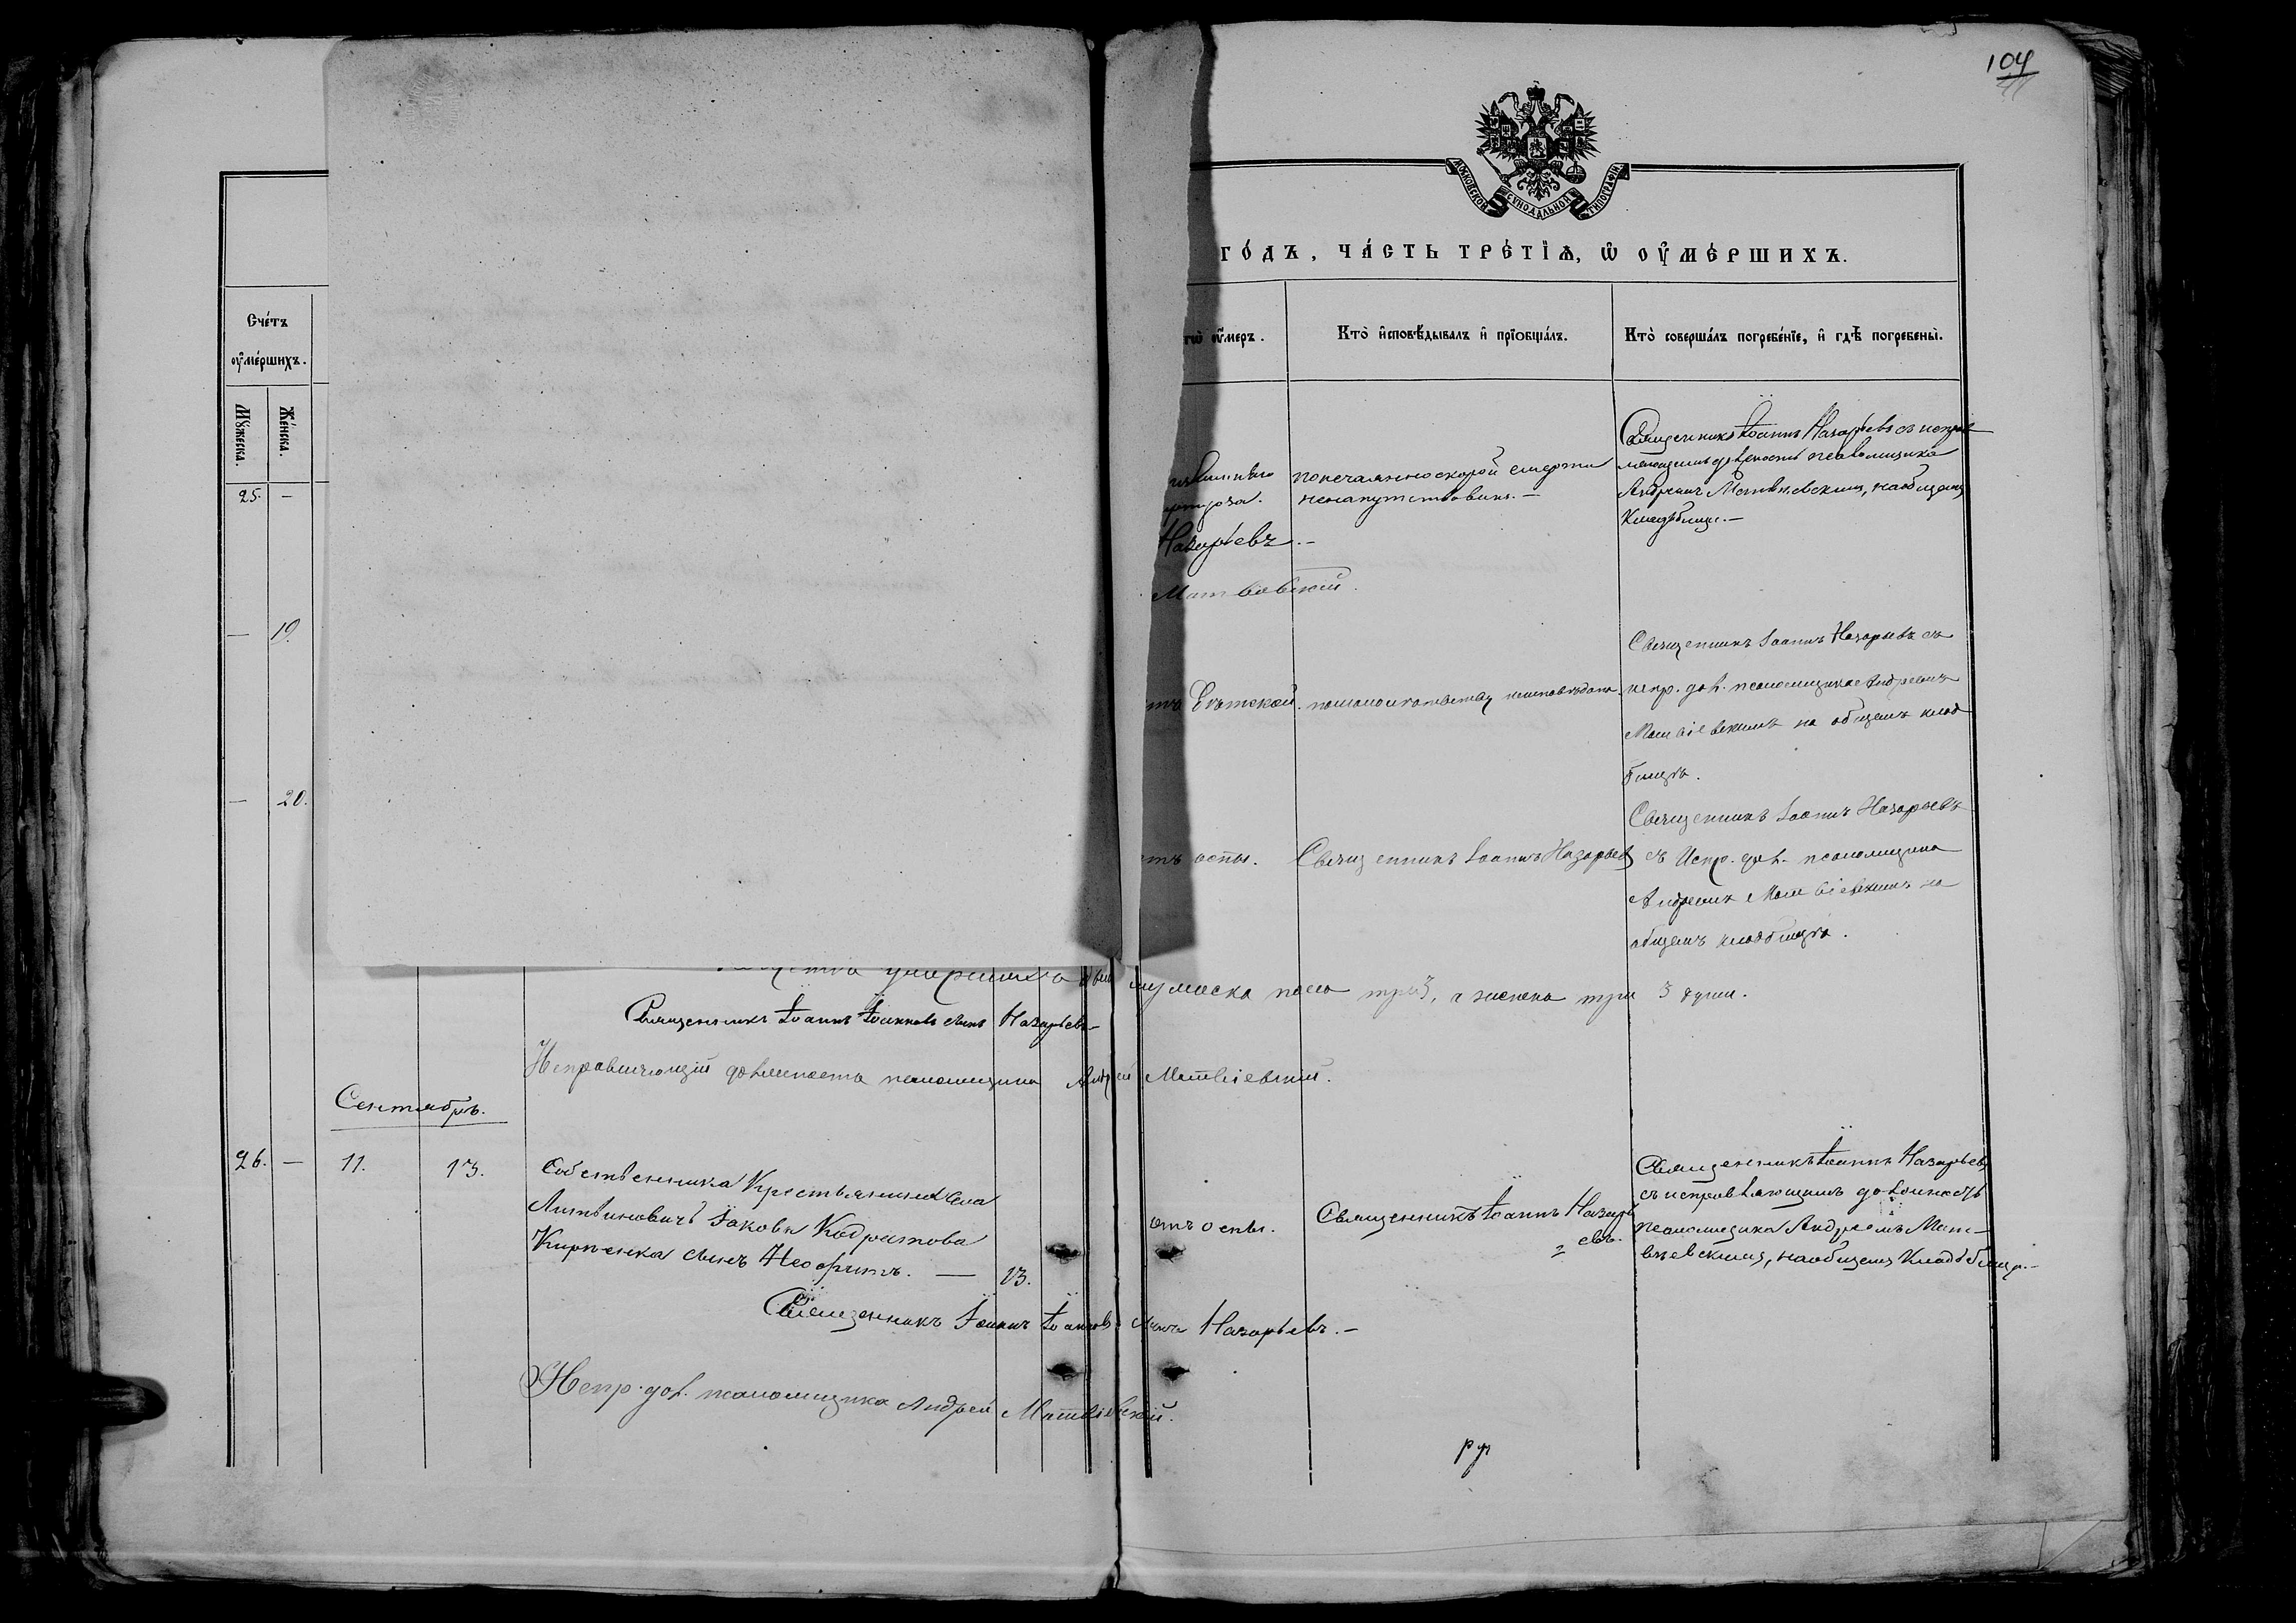 104
МОСКОВСКОЙ СѴНОДАЛЬНОЙ ТИПОГРАФІИ
ГО́ДЪ, ЧА́СТЬ ТРЕ́ТІѦ, Ѡ ОУ҆МЕ́РШИХЪ.
Сче́тъ
оу҆ме́ршихъ.
Мꙋжеска.
Же́нска.
оу҆меръ.
Кто̀ и҆сповѣ́дывалъ и҆ прїѻбща́лъ.
Кто̀ соверша́лъ погребе́нїе, и҆ гдѣ̀ погребены̀.
25. —
по нечаянно скорой смерти
ненапутствованъ. —
Священникъ Іоаннъ Назарьевъ съ
псаломщика
Андреемъ Матвѣевскимъ, на общемъ
Кладбищѣ. —
Назарьевъ. —
Матвіевскій.
— 19.
Священникъ Іоаннъ Назарьевъ съ
испр. дол. псаломщика Андреемъ
Матвіевскимъ на общемъ клад
бищѣ.
— 20.
оспы.
Священникъ Іоаннъ Назарьев
Священникъ Іоаннъ Назарьевъ
съ Испр. дол. псаломщика
Андреемъ Матвіевскимъ на
общемъ кладбищѣ.
умершихъ мужеска пола три 3, а женска три 3 души.
Священникъ Іоаннъ Іоанновъ сынъ Назарьевъ
Исправляющій должность псаломщика Андрей Матвіевскій.
Сентябрь.
26. — 11. 13.
Собственника Крестьянина села
Литвиновичъ Іакова Кодратова
Кирпенка сынъ Неофитъ. — 13.
отъ оспы.
Священникъ Іоаннъ Назарь
евъ.
Священникъ Іоаннъ Назарьевъ
съ исправляющимъ должность
псаломщика Андреемъ Мат-
вѣевскимъ, на общемъ Кладбищѣ. —
Священникъ Іоаннъ Іоанновъ сынъ Назарьевъ. —
Испр. дол. псаломщика Андрей Матвіевскій.